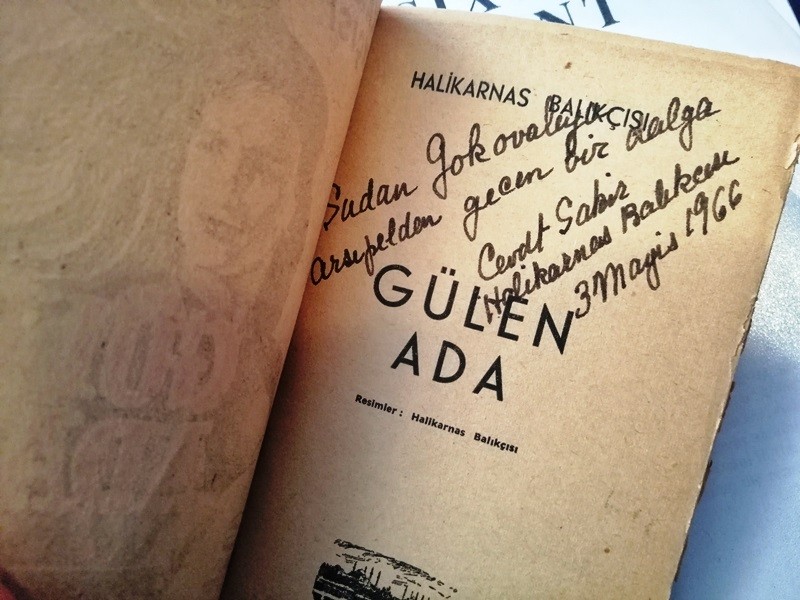 HALİKARNAS BALIKÇISI
Sudan Gokovalıya
arsıpelden geçen bir dalga
Cevdt Sakir
Halikarnas Balıkcısı
3 Mayis 1966
GÜLEN
ADA
Resimler : Halikarnas Balıkçısı